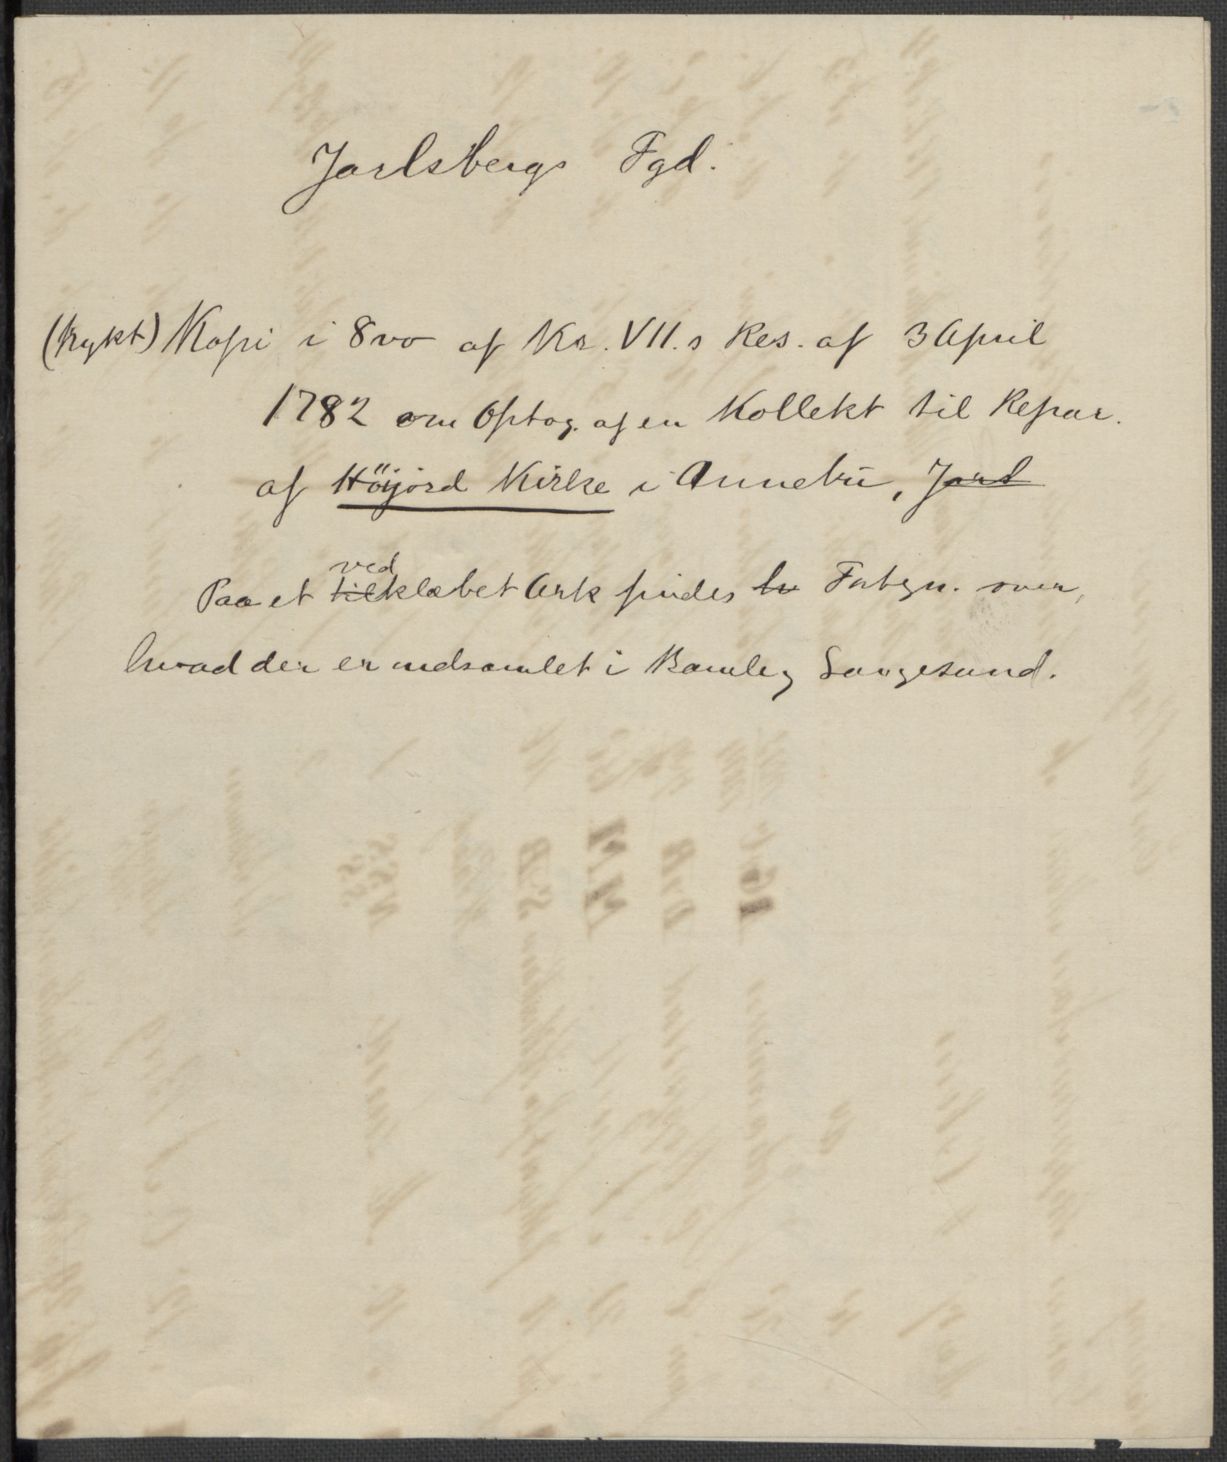 Jarlsbergs Fgd.
(trykt) Kopi i 8vo af Kr. VII.s Res. af 3 April
1782 om Optag. af en Kollekt til Repar.
af Höijord Kirke i Annebu, Jarl
ved
Paa et tilklæbet Ark findes hv Fortgn. over,
hvad der er indsamlet i Bamle, Langesund.